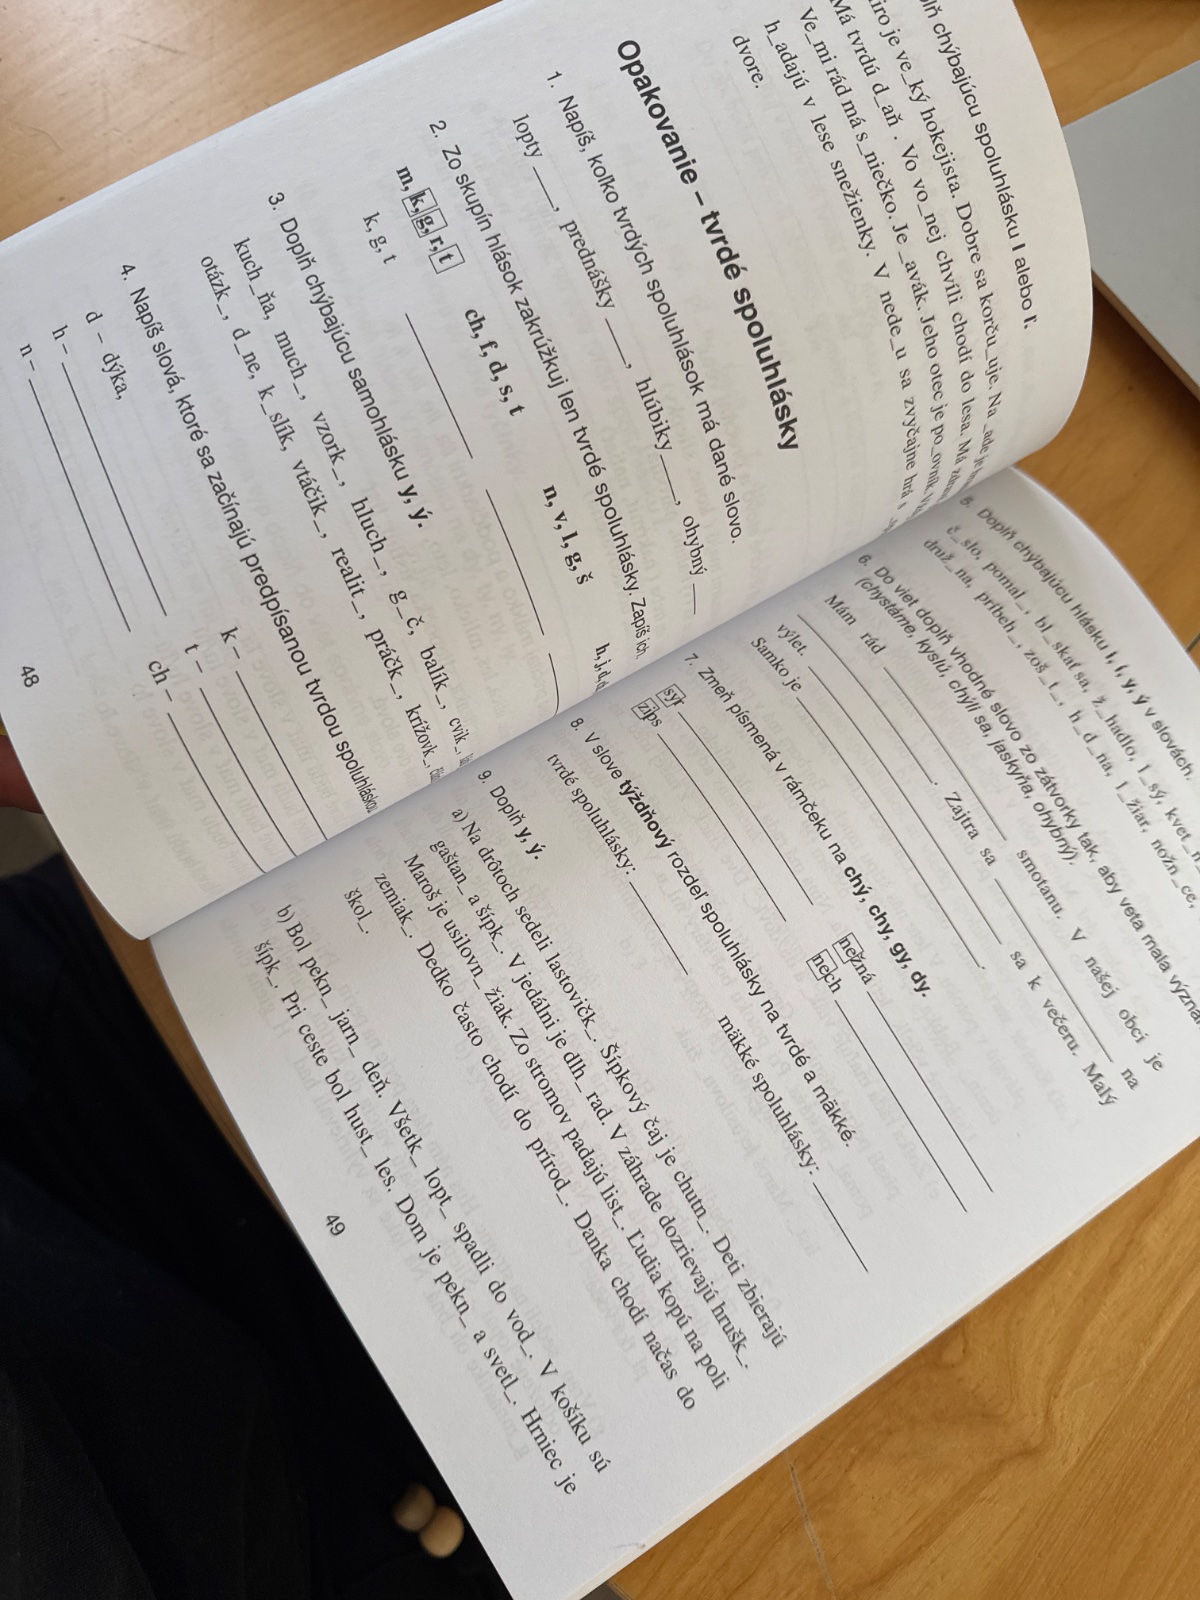 chýbajúcu spoluhlásku l alebo ľ.
je ve_ký hokejista. Dobre sa korču_uje. Na_ade je
Má tvrdú d_aň . Vo vo_nej chvíli chodí do lesa. Má
Ve_mi rád má s_niečko. Je _avák. Jeho otec je po_ovník.
h_adajú v lese snežienky. V nede_u sa zvyčajne hrá
dvore.
Opakovanie – tvrdé spoluhlásky
1. Napíš, koľko tvrdých spoluhlások má dané slovo.
lopty ___, prednášky ___, hlúbiky ___, ohybný ___
2. Zo skupín hlások zakrúžkuj len tvrdé spoluhlásky. Zapíš ich.
m, k, g, r, t ch, f, d, s, t n, v, l, g, š h, j, d,
k, g, t
3. Doplň chýbajúcu samohlásku y, ý.
kuch_ňa, much_, vzork_, hluch_, g_č, balík_, cvik_,
otázk_, d_ne, k_slík, vtáčik_, realit_, práčk_, krížovk_,
4. Napíš slová, ktoré sa začínajú predpísanou tvrdou spoluhláskou.
d – dýka, k –
h – t –
n – ch –
48
5. Doplň chýbajúcu hlásku i, í, y, ý v slovách.
č_slo, pomal_, bl_skať sa, ž_hadlo, l_sý, kvet_
druž_na, príbeh_, zoš_t_, h_d_na, l_žiar, nožn_ce,
6. Do viet doplň vhodné slovo zo zátvorky tak, aby veta mala význam
(chystáme, kyslú, chýli sa, jaskyňa, ohybný).
Mám rád ___ smotanu. V našej obci je
___. Zajtra sa ___ na
výlet. ___ sa k večeru. Malý
Samko je ___.
7. Zmeň písmená v rámčeku na chý, chy, gy, dy.
syr ___ nežná ___
zips ___ nech ___
8. V slove týždňový rozdeľ spoluhlásky na tvrdé a mäkké.
tvrdé spoluhlásky: ___ mäkké spoluhlásky: ___
9. Doplň y, ý.
a) Na drôtoch sedeli lastovičk_. Šípkový čaj je chutn_. Deti zbierajú
gaštan_ a šípk_. V jedálni je dlh_ rad. V záhrade dozrievajú hrušk_.
Maroš je usilovn_ žiak. Zo stromov padajú list_. Ľudia kopú na poli
zemiak_. Dedko často chodí do prírod_. Danka chodí načas do
škol_.
b) Bol pekn_ jarn_ deň. Všetk_ lopt_ spadli do vod_. V košíku sú
šípk_. Pri ceste bol hust_ les. Dom je pekn_ a svetl_. Hrniec je
49